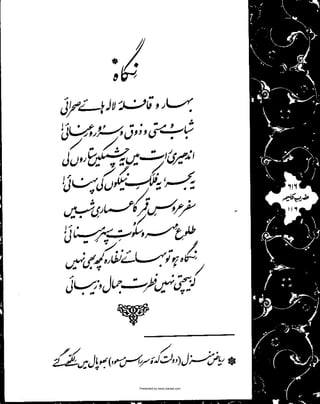 نگاہ
بہار و قافلۂ لالہ ہائے صحرائی
شباب و مستی و ذوق و سرور و رعنائی!
اندھیری رات میں یہ چشمکیں ستاروں کی
یہ بحر، یہ فلک نیلگوں کی پہنائی!
سفر عروس قمر کا عماری شب میں
طلوع مہر و سکوت سپہر مینائی!
نگاہ ہو تو بہائے نظارہ کچھ بھی نہیں
کہ بیچتی نہیں فطرت جمال و زیبائی
* ریاض منزل (دولت کدۂ سر راس مسعود) بھوپال میں لکھے گئے
Presented by www.ziaraat.com